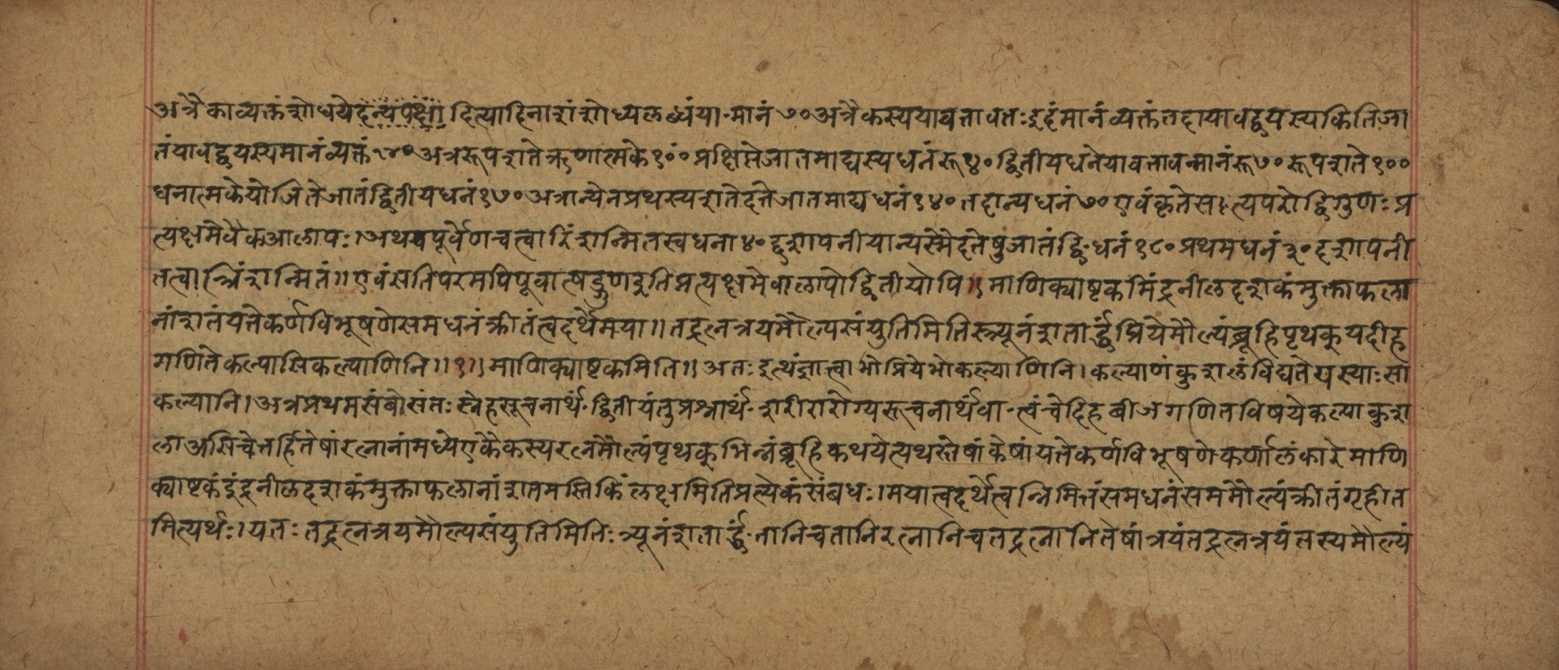 अत्रैकाव्यक्तंशोधयेदन्यपक्षा दित्यादिनाशांशोध्यलब्धंया॰मानं ७० अत्रैकस्ययावत्तावतःइदंमानंव्यक्तंतदायावद्द्वयस्यकिंतिजा
तंयावद्द्वयस्यमानंव्यक्तं १४० अत्ररूपशतेऋणात्मके १०ं०ं प्रक्षिप्तेजातमाद्यस्यधनंरू ४० द्वितीयधनेयावत्तावन्मानंरू ७० रूपशते १००
धनात्मकेयोजितेजातंद्वितीयधनं १७० अत्रान्येनप्रथस्यशतेदत्तेजातमाद्यधनं १४० तदान्यधनं ७० एवंकृतेसत्यपरोद्विगुणःप्र
त्यक्षमेवैकआलापः। अथचपूर्वेणचत्वारिंशन्मितस्वधना ४० द्दशापनीयान्यस्मैदत्तेषुजातंद्वि॰धनं १८० प्रथमधनं ३० दशापनी
तत्वात्त्रिंशन्मितं॥ एवंसतिपरमपिपूर्वात्षड्गुणइतिप्रत्यक्षमेवालापोद्वितीयोपि॥ माणिक्याष्टकमिंद्रनीलदशकंमुक्ताफला
नांशतंयत्तेकर्णविभूषणेसमधनंक्रीतंत्वदर्थेमया॥ तद्रत्नत्रयमौल्यसंयुतिमितिस्त्र्यूनंशतार्द्धंप्रियेमौल्यंब्रूहिपृथक्‌यदीह
गणितेकल्पासिकल्याणिनि॥१॥ माणिक्याष्टकमिति॥ अतःइत्थंज्ञात्वाभोप्रियेभोकल्याणिनि। कल्याणंकुशलंविद्यतेयस्याःसा
कल्यानि। अत्रप्रथमसंबोसंतःस्नेहसूचनार्थं॰द्वितीयंतुप्रश्नार्थं॰शरीरारोग्यसूचनार्थंवा॰त्वंचेदिहबीजगणितविषयेकल्याकुश
लाअसिचेत्तर्हितेषांरत्नानांमध्येएकैकस्यरत्नमौल्यंपृथक्‌भिन्नंब्रूहिकथयेत्यथस्तेषांकेषांयत्तेकर्णविभूषणेकर्णालंकारेमाणि
क्याष्टकंइंद्रनीलदशकंमुक्ताफलानांशतमस्तिकिंलक्ष्मितिप्रत्येकंसंबधः। मयात्वदर्थेत्वन्निमित्तंसमधनंसममौल्यंक्रीतंगृहीत
मित्यर्थः। यतः॰तद्रत्नत्रयमौल्यसंयुतिमितिःत्र्यूनंशतार्द्धं॰तानिचतानिरत्नानिचतद्रत्नानितेषांत्रयंतद्रत्नत्रयंतस्यमौल्यं